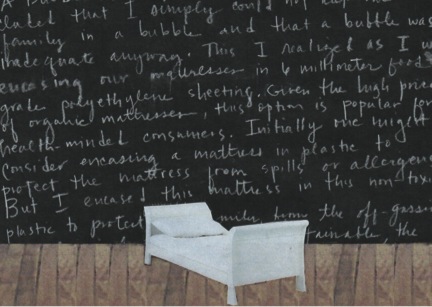 cluded that I simply could not
family in a bubble and that a bubble was
inadequate anyway. This I realized as I
encasing our mattresses in 6 millimeter food
grade polyethylene sheeting. Given the high price
of organic mattresses, this option is popular for
health-minded consumers. Initially one might
consider encasing a mattress in plastic to
protect the mattress from spills or allergens
But I encased this mattress in this non-toxic
plastic to protect from the off-gassi
the